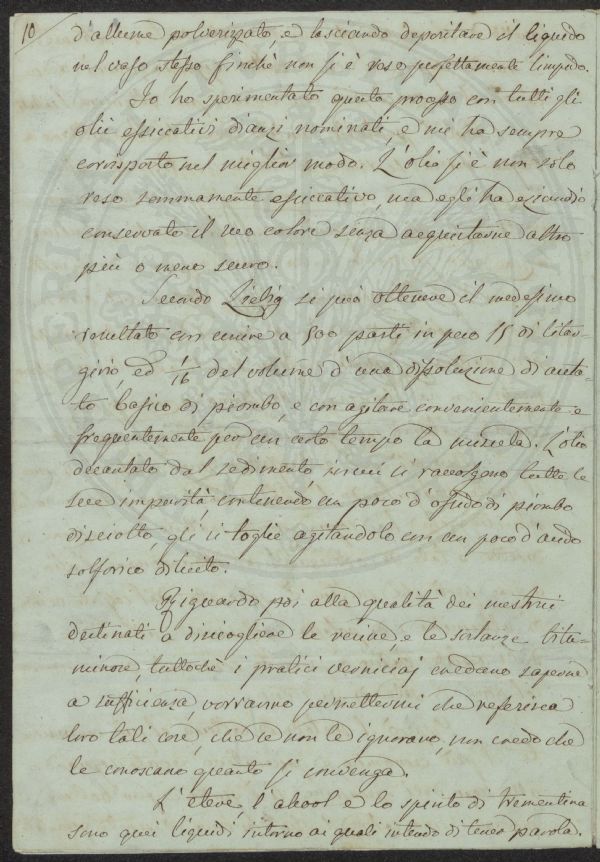 10
d'allume polverizzato, e lasciando depositare il liquido
nel vaso stesso finchè non si è reso perfettamente limpido.
Io ho sperimentato questo process con tutti gli
olii essiccativi dianzi nominati, e mi ha sempre
corrisposto nel miglior modo. L'olio si è non solo
reso sommamente essiccativo, ma egli ha eziandio
conservato il suo colore senza acquistarne altro
più o meno scuro.
Secondo Liebig si può ottenere il medesimo
resultato con unire a 500 parti in peso 15 di litar-
girio, ed 1/16 del volume d'una dissoluzione di aceta-
to basico di piombo, e con agitare convenientemente e
frequentemente per un certo tempo la miscela. L'olio
decantato dal sedimento, in cui si raccolgono tutte le
sue impurità contenendo un poco d'ossido di piombo
disciolto, gli si toglie agitandolo con un poco d'acido
solforico diluito.
Riguardo poi alla qualità dei mestrui
destinati a disciogliere le resine, e le sostanze bitu-
minose, tuttochè i pratici verniciaj credano saperne
a sufficienza, vorranno permettermi che referisca
loro tali cose, che se non le ignorano, non credo che
le conoscano quanto si convenga.
L'etere, l'alcool e lo spirito di trementina
sono quei liquidi intorno ai quali intendo di tener parola.